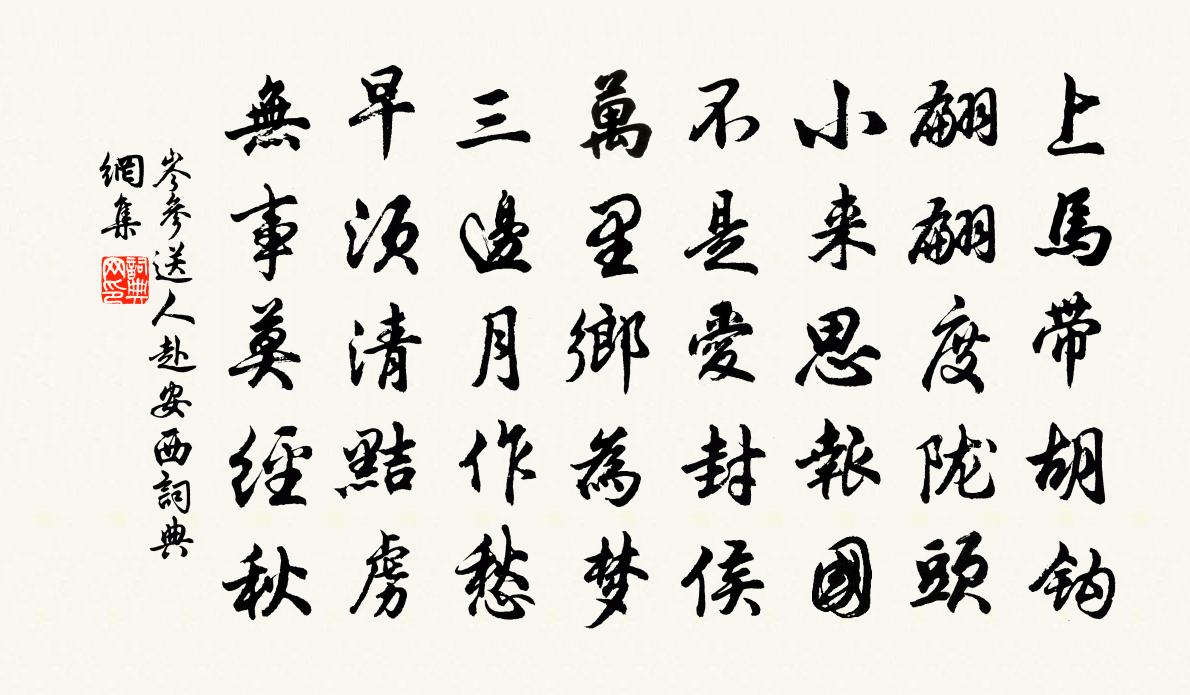 上馬带胡钩
翩翩度陇頭
小来思報國
不是愛封侯
萬里鄉為梦
三邊月作愁
早須清黠虜
無事莫經秋
岑參送人赴安西詞典
網集
詞典網印